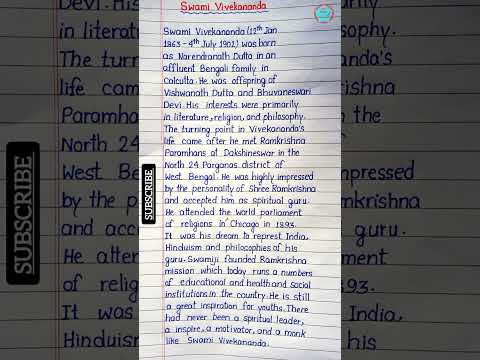 Swami Vivekananda
Swami Vivekananda (12th Jan
1863 - 4th July 1902) was born
as Narendranath Dutta in an
affluent Bengali family in
Calcutta. He was offspring of
Vishwanath Dutta and Bhuvaneswari
Devi. His interests were primarily
in literature, religion, and philosophy.
The turning point in Vivekananda's
life came after he met Ramkrishna
Paramhans at Dakshineswar in the
North 24 Parganas district of
West Bengal. He was highly impressed
by the personality of Shree Ramkrishna
and accepted him as spiritual guru.
He attended the world parliament
of religions in Chicago in 1893.
It was his dream to represt India,
Hinduism and philosophies of his
guru. Swamiji founded Ramkrishna
mission which today runs a numbers
of educational and health and social
institutions in the country. He is still
a great inspiration for youths. There
had never been a spiritual leader,
a inspire, a motivator, and a monk
like Swami Vivekananda.
SUBSCRIBE
Devi. His
in literatu
The turni
life came
Paramhan
North 24
West Ben
by the p
and acce
He atten
of relig
It was
Hinduism
SUBSCRIBE
ily
osophy.
nanda's
krishna
in the
of
mpressed
krishna
guru.
ment
893.
India,
of his